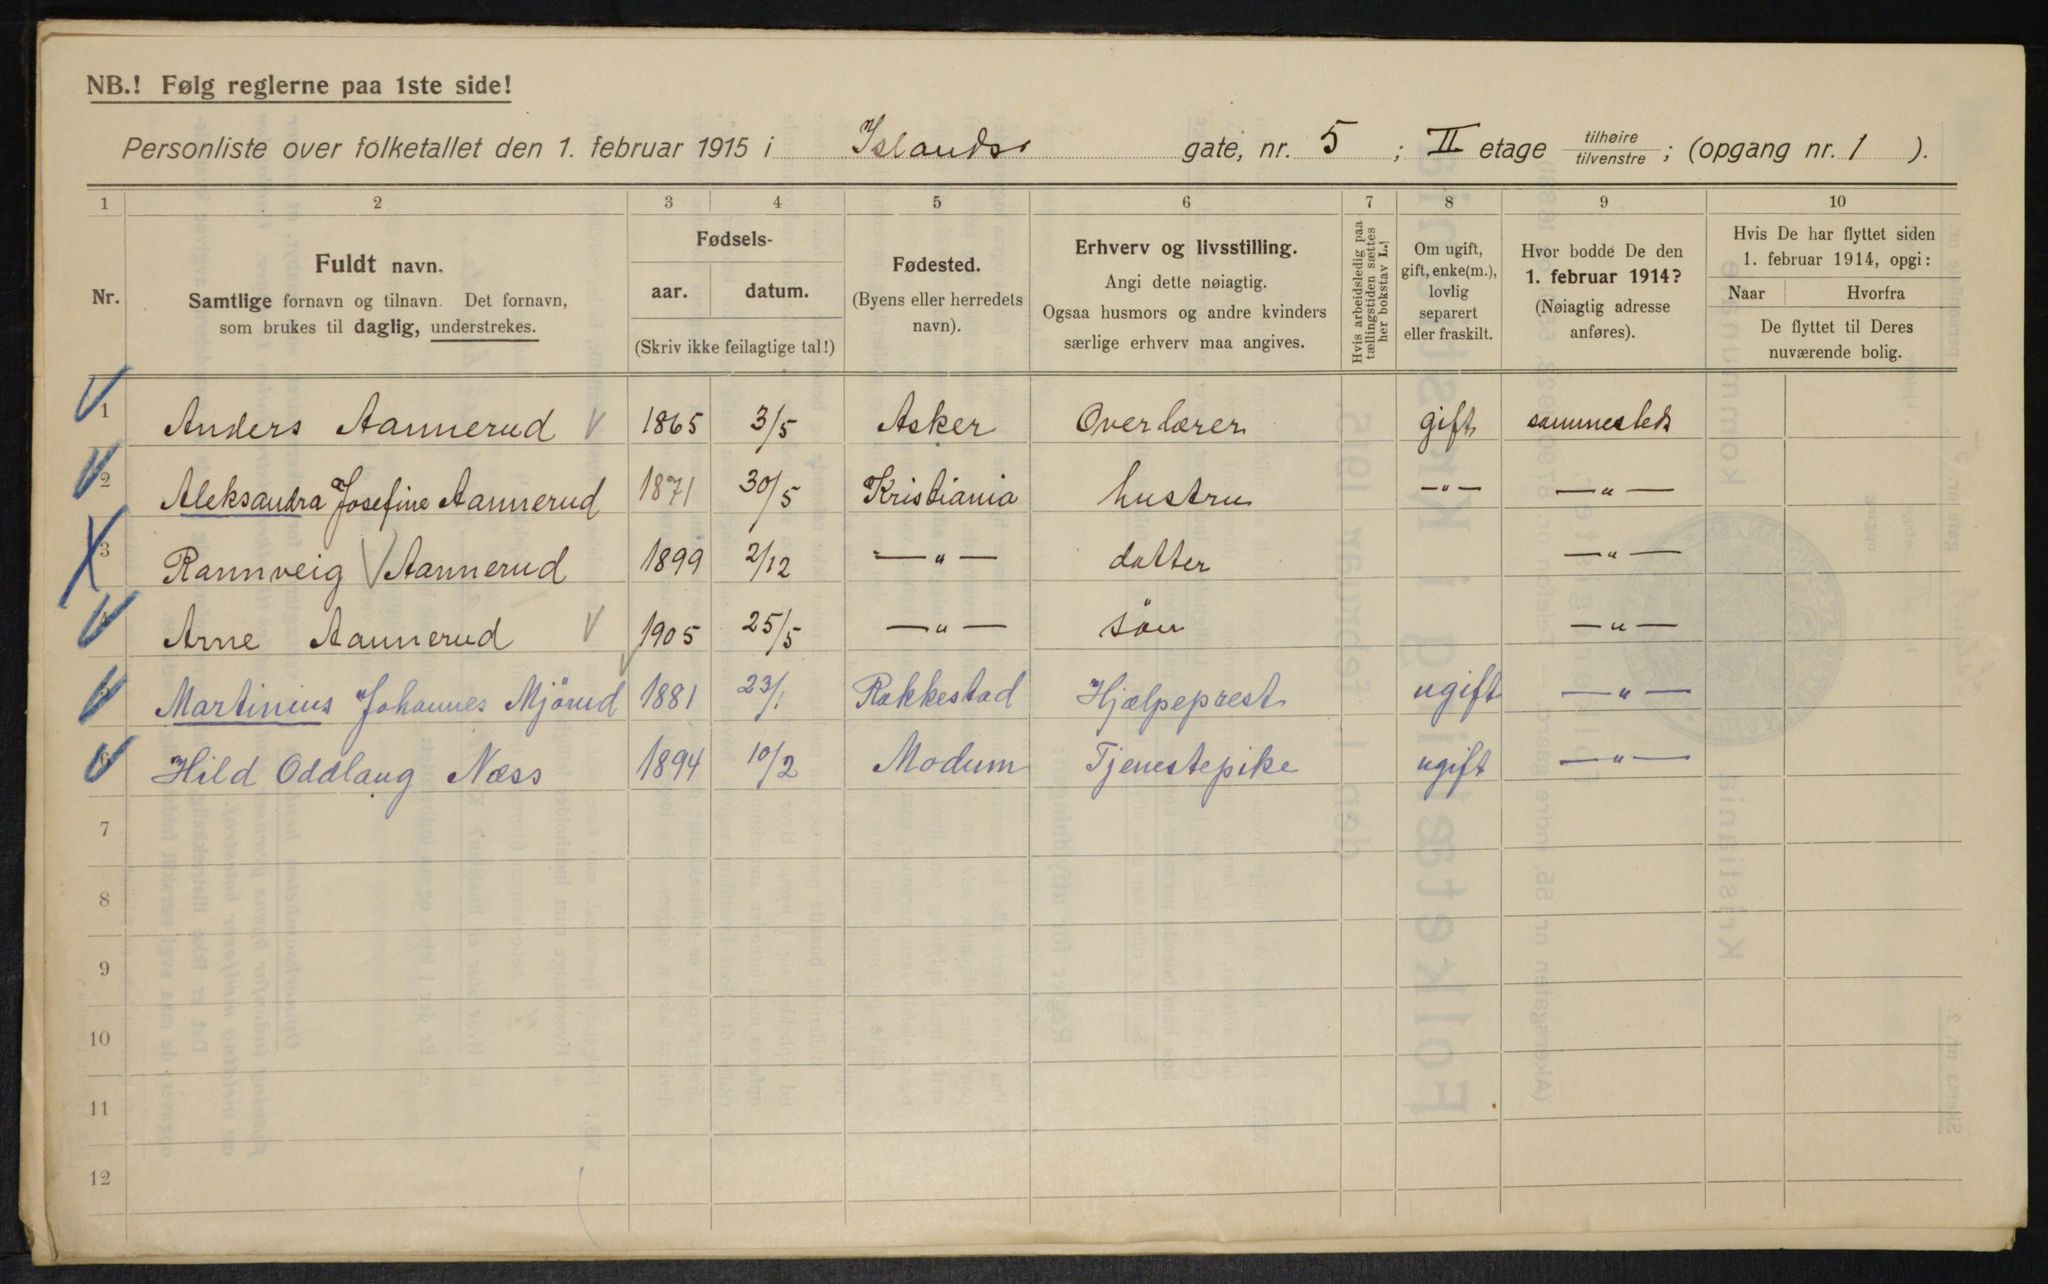 NB.! Følg reglerne paa 1ste side!
Personliste over folketallet den 1. februar 1915 i Islands gate, nr. 5 ; II etage tilhøire tilvenstre ; (opgang nr. 1 ).
1 2 3 4 5 6 7 8 9 10
Nr.
Fuldt navn.
Samtlige fornavn og tilnavn. Det fornavn,
som brukes til daglig, understrekes.
Fødsels-
aar. datum.
(Skriv ikke feilagtige tal!)
Fødested.
(Byens eller herredets
navn).
Erhverv og livsstilling.
Angi dette nøiagtig.
Ogsaa husmors og andre kvinders
særlige erhverv maa angives.
Hvis arbeidsledig paa
tællingstiden sættes
her bokstav L.!
Om ugift,
gift, enke(m.),
lovlig
separert
eller fraskilt.
Hvor bodde De den
1. februar 1914?
(Nøiagtig adresse
anføres).
Hvis De har flyttet siden
1. februar 1914, opgi:
Naar Hvorfra
De flyttet til Deres
nuværende bolig.
1 Anders Aannerud 1865 3/5 Asker Overlærer gift sammesteds
2 Aleksandra Josefine Aannerud 1871 30/5 Kristiania hustru —"— —"—
3 Rannveig Aannerud 1899 2/12 —"— datter —"—
4 Arne Aannerud 1905 25/5 —"— søn —"—
5 Martinius Johannes Mjørud 1881 23/1 Rakkestad Hjælpeprest ugift —"—
6 Hild Oddlaug Næss 1894 10/2 Modum Tjenestepike ugift —"—
7
8
9
10
11
12